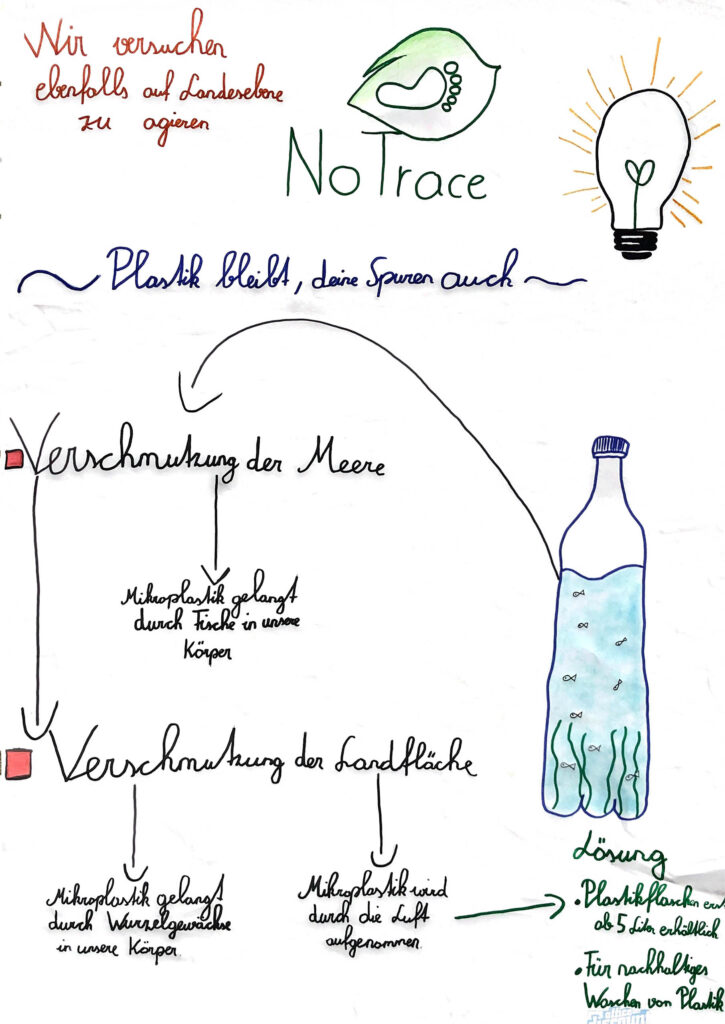 Wir versuchen
ebenfalls auf Landesebene
zu agieren
No Trace
Plastik bleibt, deine Spuren auch
Verschmutzung der Meere
Mikroplastik gelangt
durch Fische in unsere
Körper
Verschmutzung der Landfläche
Mikroplastik gelangt
durch Wurzelgewächse
in unsere Körper
Mikroplastik wird
durch die Luft
aufgenommen
Lösung
• Plastikflaschen erst
ab 5 Liter erhältlich
• Für nachhaltiges
Waschen von Plastik